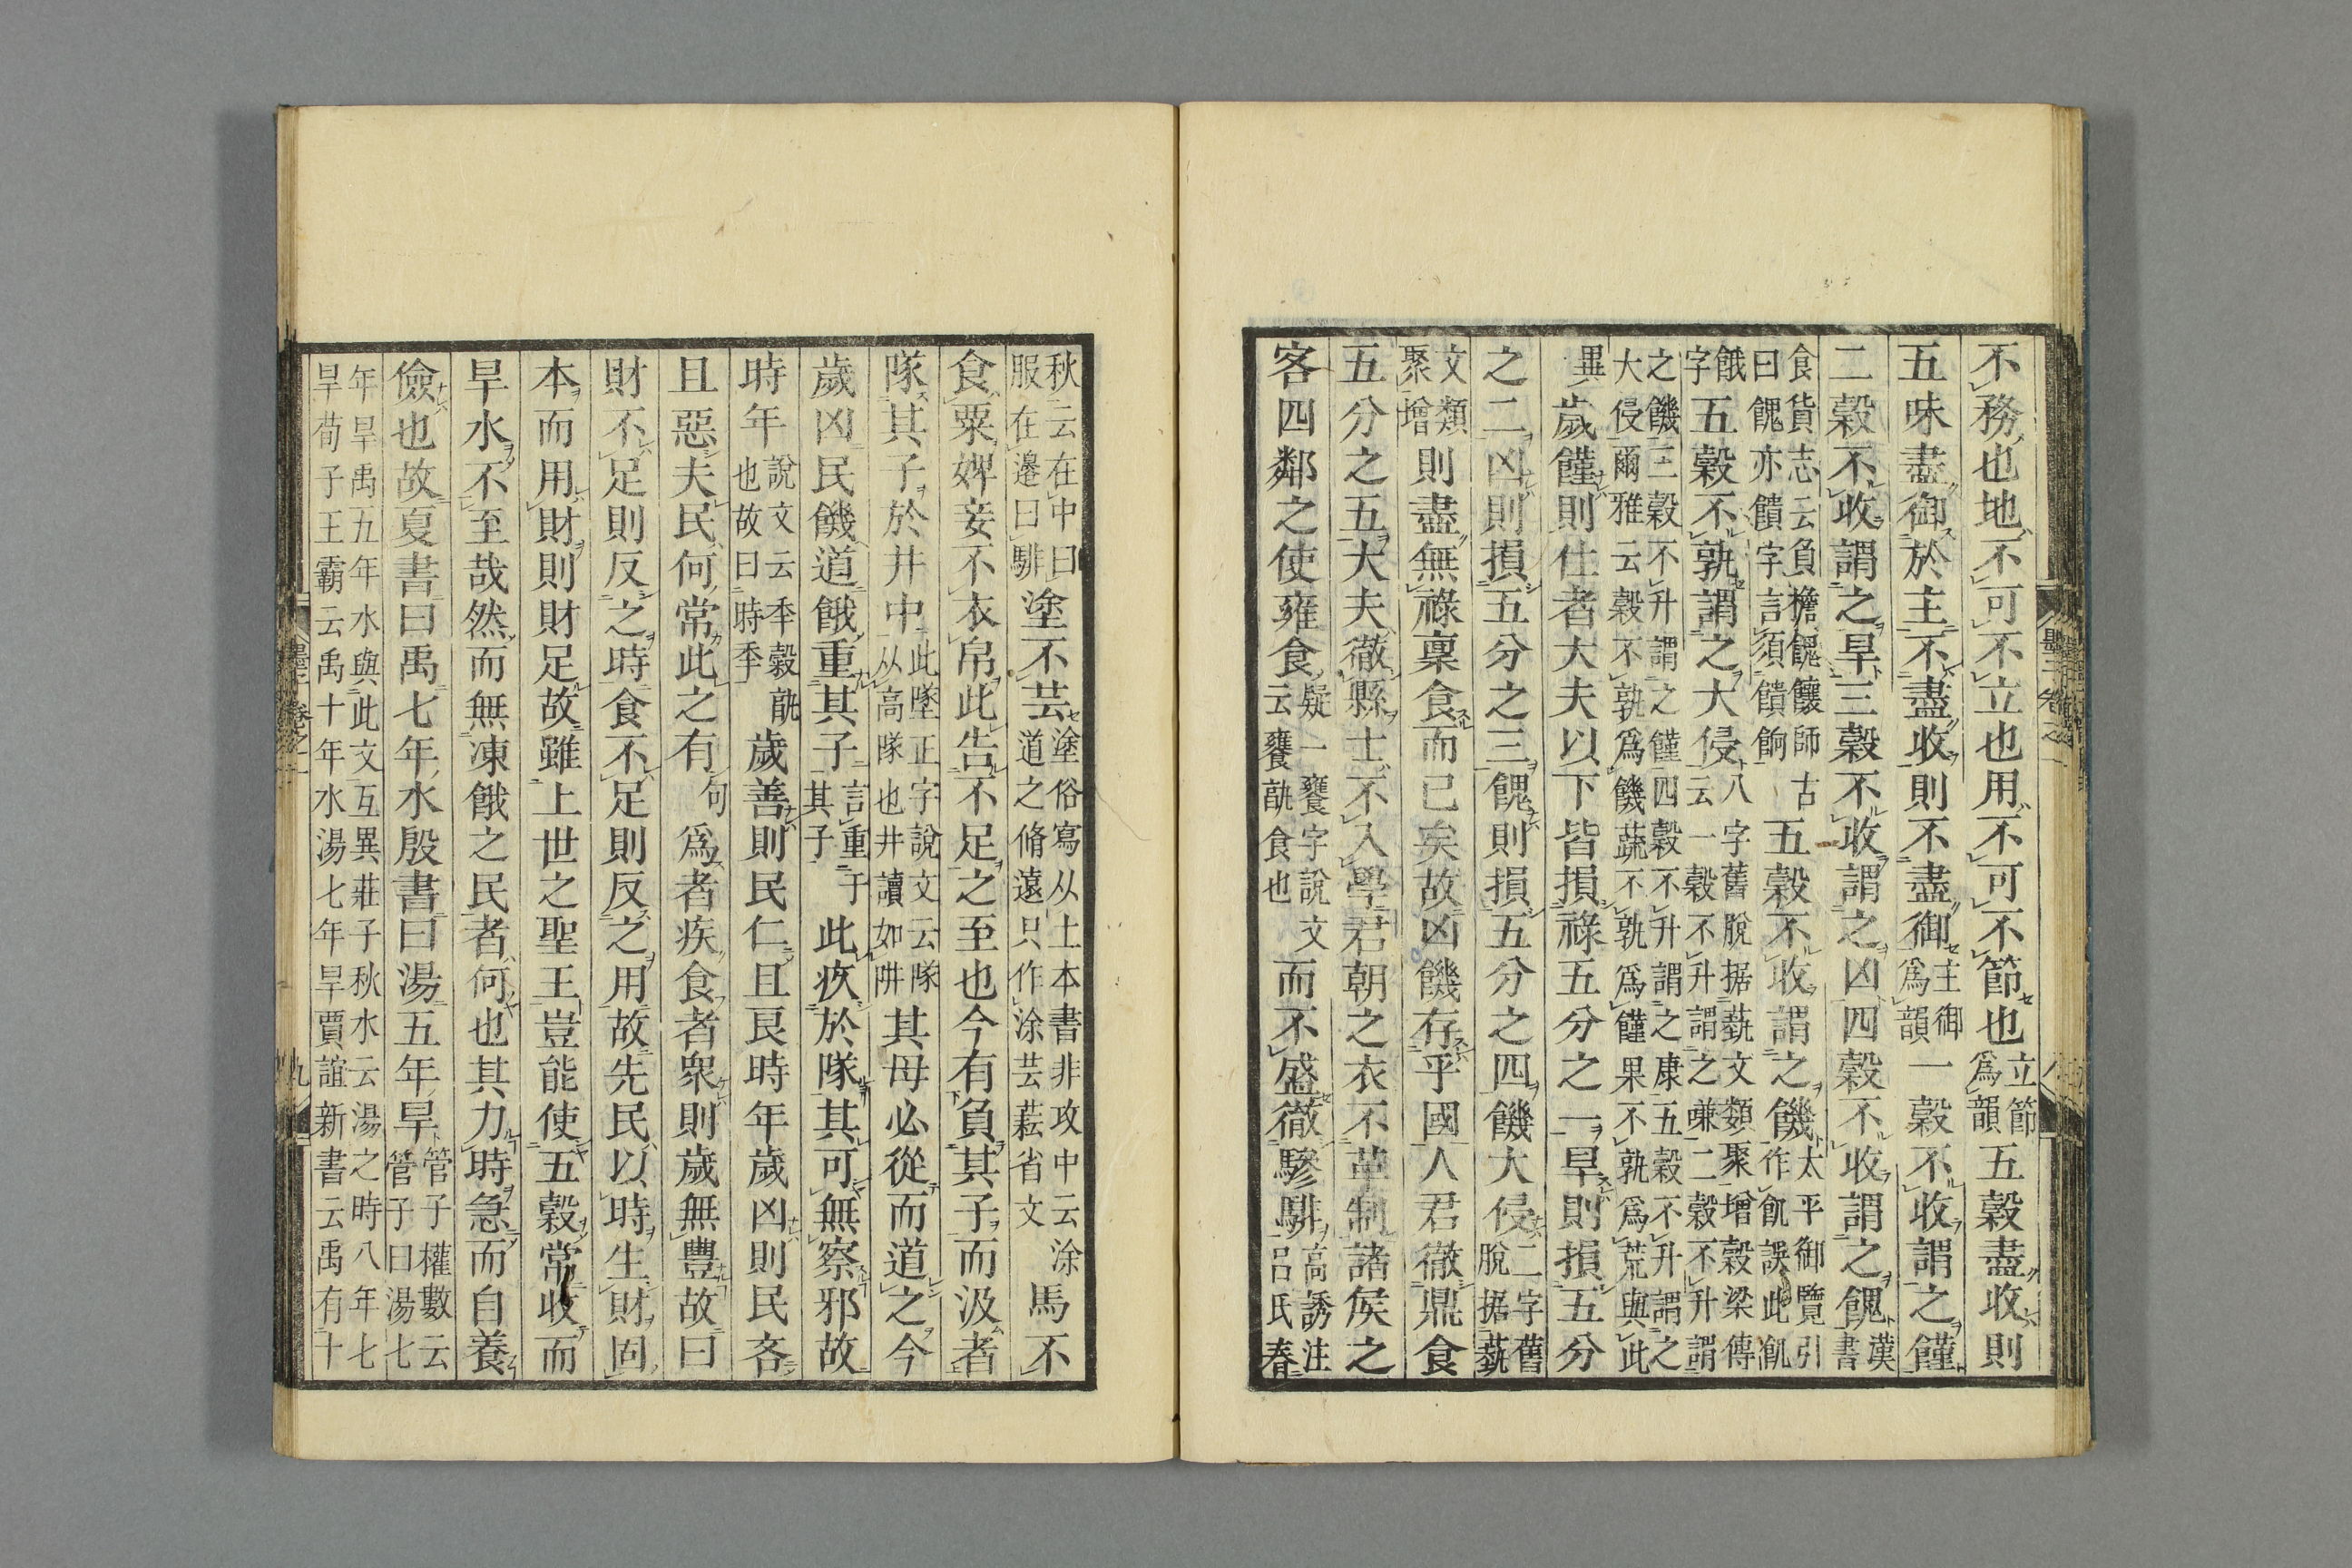 不務也地不可不立也用不可不節也立節爲韻五穀盡收則
五味盡御於主不盡收則不盡御主御爲韻一穀不收謂之饉
二穀不收謂之旱三穀不收謂之凶四穀不收謂之餽漢書
食貨志云負擔餽饟師古曰餽亦饋字言須饋餉五穀不收謂之饑太平御覽引作飢誤此飢
餓字五穀不孰謂之大侵八字舊脫据蓺文類聚增穀梁傳云一穀不升謂之嗛二穀不升謂
之饑三穀不升謂之饉四穀不升謂之康五穀不升謂之大侵爾雅云穀不孰爲饑蔬不孰爲饉果不孰爲荒與此
異歲饉則仕者大夫以下皆損祿五分之一旱則損五分
之二凶則損五分之三餽則損五分之四饑大侵二字舊脫据蓺
文類聚增則盡無祿稟食而已矣故凶饑存乎國人君徹鼎食
五分之五大夫徹縣士不入學君朝之衣不革制諸侯之
客四鄰之使雍食疑一饔字說文云饔孰食也而不盛徹驂騑高誘注呂氏春
墨子 卷之一 八
秋云在中曰服在邉曰騑塗不芸塗俗寫从土本書非攻中云涂道之脩遠只作涂芸蕓省文馬不
食粟婢妾不衣帛此告不足之至也今有負其子而汲者
隊其子於井中此墜正字說文云隊从高隊也井讀如阱其母必從而道之今
歲凶民饑道餓重其子言重于其子此疚於隊其可無察邪故
時年說文云秊穀孰也故曰時秊歲善則民仁且良時年歲凶則民吝
且惡夫民何常此之有句爲者疾食者衆則歲無豐故曰
財不足則反之時食不足則反之用故先民以時生財固
本而用財則財足故雖上世之聖王豈能使五穀常收而
旱水不至哉然而無凍餓之民者何也其力時急而自養
儉也故夏書曰禹七年水殷書曰湯五年旱管子權數云管子曰湯七
年旱禹五年水與此文互異莊子秋水云湯之時八年七旱荀子王霸云禹十年水湯七年旱賈誼新書云禹有十
墨子 卷之一 九